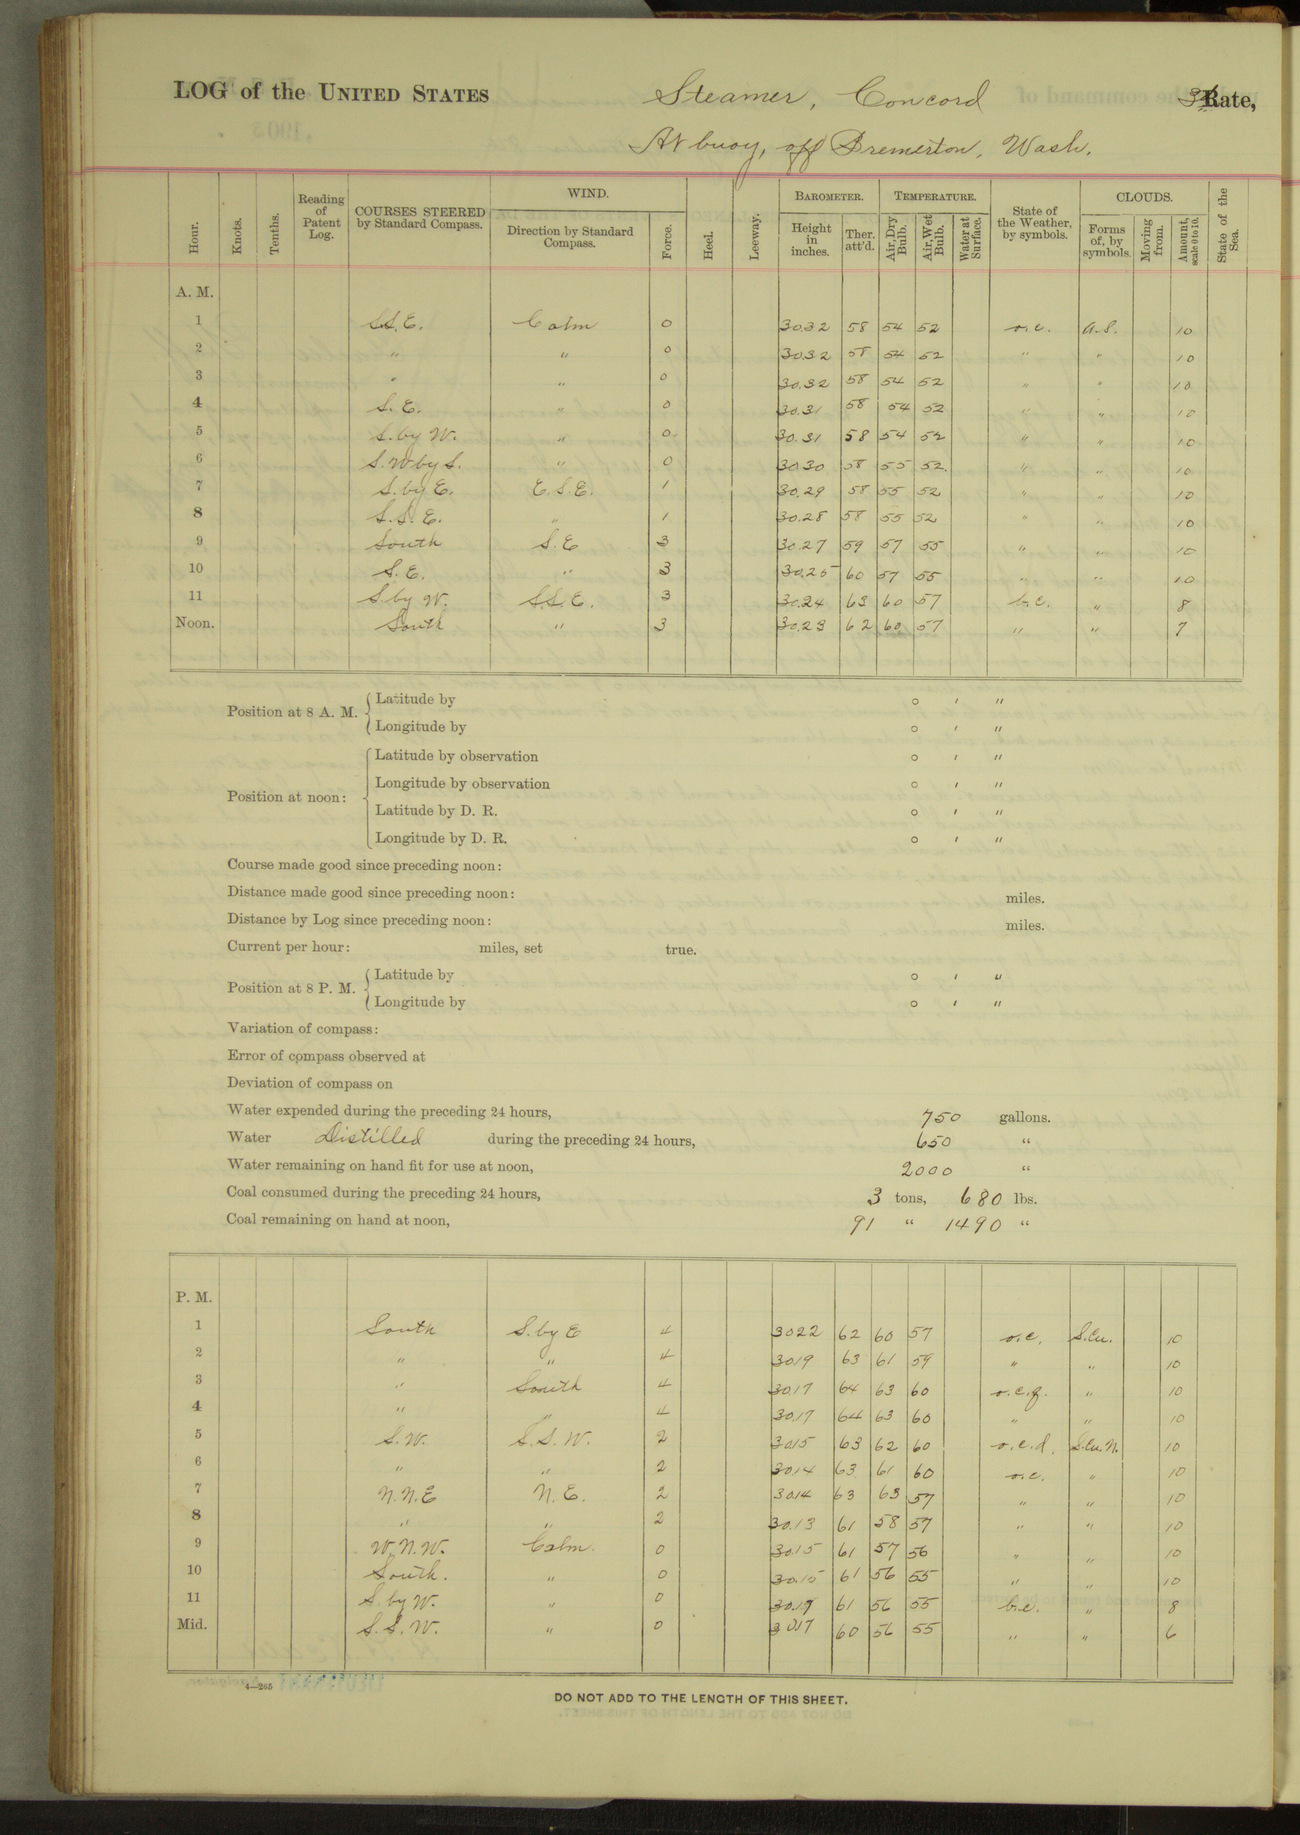 LOG of the UNITED STATES Steamer, Concord 3d Rate,
At buoy, off Bremerton, Wash.
Hour. Knots. Tenths. Reading of Patent Log. COURSES STEERED by Standard Compass. WIND. Direction by Standard Compass. Force. Heel. Leeway. BAROMETER. Height in inches. Ther. att'd. TEMPERATURE. Air, Dry Bulb. Air, Wet Bulb. Water at Surface. State of the Weather, by symbols. CLOUDS. Forms of, by symbols. Moving from. Amount, scale 0 to 10. State of the Sea.
A. M.
1 S.S.E. Calm 0 30.32 58 54 52 o.c. A.S. 10
2 " " 0 30.32 58 54 52 " " 10
3 " " 0 30.32 58 54 52 " " 10
4 S.E. " 0 30.31 58 54 52 " " 10
5 S. by W. " 0 30.31 58 54 52 " " 10
6 S.W by S. " 0 30.30 58 55 52. " " 10
7 S. by E. E.S.E. 1 30.29 58 55 52 " " 10
8 S.S.E. " 1 30.28 58 55 52 " " 10
9 South S.E 3 30.27 59 57 55 " " 10
10 S.E. " 3 30.25 60 57 55 " " 10
11 S. by W. S.S.E. 3 30.24 63 60 57 b.c. " 8
Noon. South " 3 30.23 62 60 57 " " 7
Position at 8 A. M. Latitude by ° ' "
Longitude by ° ' "
Position at noon: Latitude by observation ° ' "
Longitude by observation ° ' "
Latitude by D. R. ° ' "
Longitude by D. R. ° ' "
Course made good since preceding noon:
Distance made good since preceding noon: miles.
Distance by Log since preceding noon: miles.
Current per hour: miles, set true.
Position at 8 P. M. Latitude by ° ' "
Longitude by ° ' "
Variation of compass:
Error of compass observed at
Deviation of compass on
Water expended during the preceding 24 hours, 750 gallons.
Water Distilled during the preceding 24 hours, 650 "
Water remaining on hand fit for use at noon, 2000 "
Coal consumed during the preceding 24 hours, 3 tons, 680 lbs.
Coal remaining on hand at noon, 91 " 1490 "
P. M.
1 South S. by E 4 3022 62 60 57 o.c. S.Cu. 10
2 " " 4 3019 63 61 59 " " 10
3 " South 4 30.17 64 63 60 o.c.q. " 10
4 " " 4 30.17 64 63 60 " " 10
5 S.W. S.S.W. 2 3015 63 62 60 o.c.d. S.Cu.N. 10
6 " " 2 3014 63 61 60 o.c. " 10
7 N.N.E N.E. 2 3014 63 63 57 " " 10
8 " " 2 30.13 61 58 57 " " 10
9 W.N.W. Calm. 0 30.15 61 57 56 " " 10
10 South. " 0 30.15 61 56 55 " " 10
11 S. by W. " 0 30.17 61 56 55 b.c. " 8
Mid. S.S.W. " 0 3017 60 56 55 " " 6
4—265
DO NOT ADD TO THE LENGTH OF THIS SHEET.